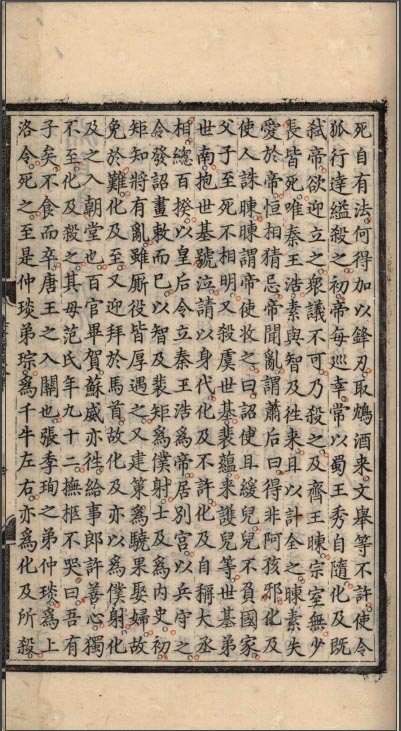 死自有法何得加以鋒刃取鴆酒來文舉等不許使令
狐行達縊殺之初帝每巡幸常以蜀王秀自隨化及既
弑帝欲迎立之衆議不可乃殺之及齊王暕宗室無少
長皆死唯秦王浩素與智及往來且以計全之暕素失
愛於帝恒相猜忌帝聞亂謂蕭后曰得非阿孩邪化及
使人誅暕暕謂帝使收之曰詔使且緩兒兒不負國家
父子至死不相明又殺虞世基裴蘊來護兒等世基弟
世南抱世基號泣請以身代化及不許化及自稱大丞
相總百揆以皇后令立秦王浩爲帝居別宮以兵守之
令發詔畫敕而已以智及裴矩爲僕射士及爲内史初
矩知將有亂雖厮役皆厚遇之又建策爲驍果娶婦故
免於難化及至又迎拜於馬首故化及亦以爲僕射化
及之入朝堂也百官畢賀蘇威亦徃給事郎許善心獨
不至化及殺之其母范氏年九十二撫柩不哭曰吾有
子矣不食而卒唐王之入關也張季珣之弟仲琰爲上
洛令死之至是仲琰弟琮爲千牛左右亦爲化及所殺